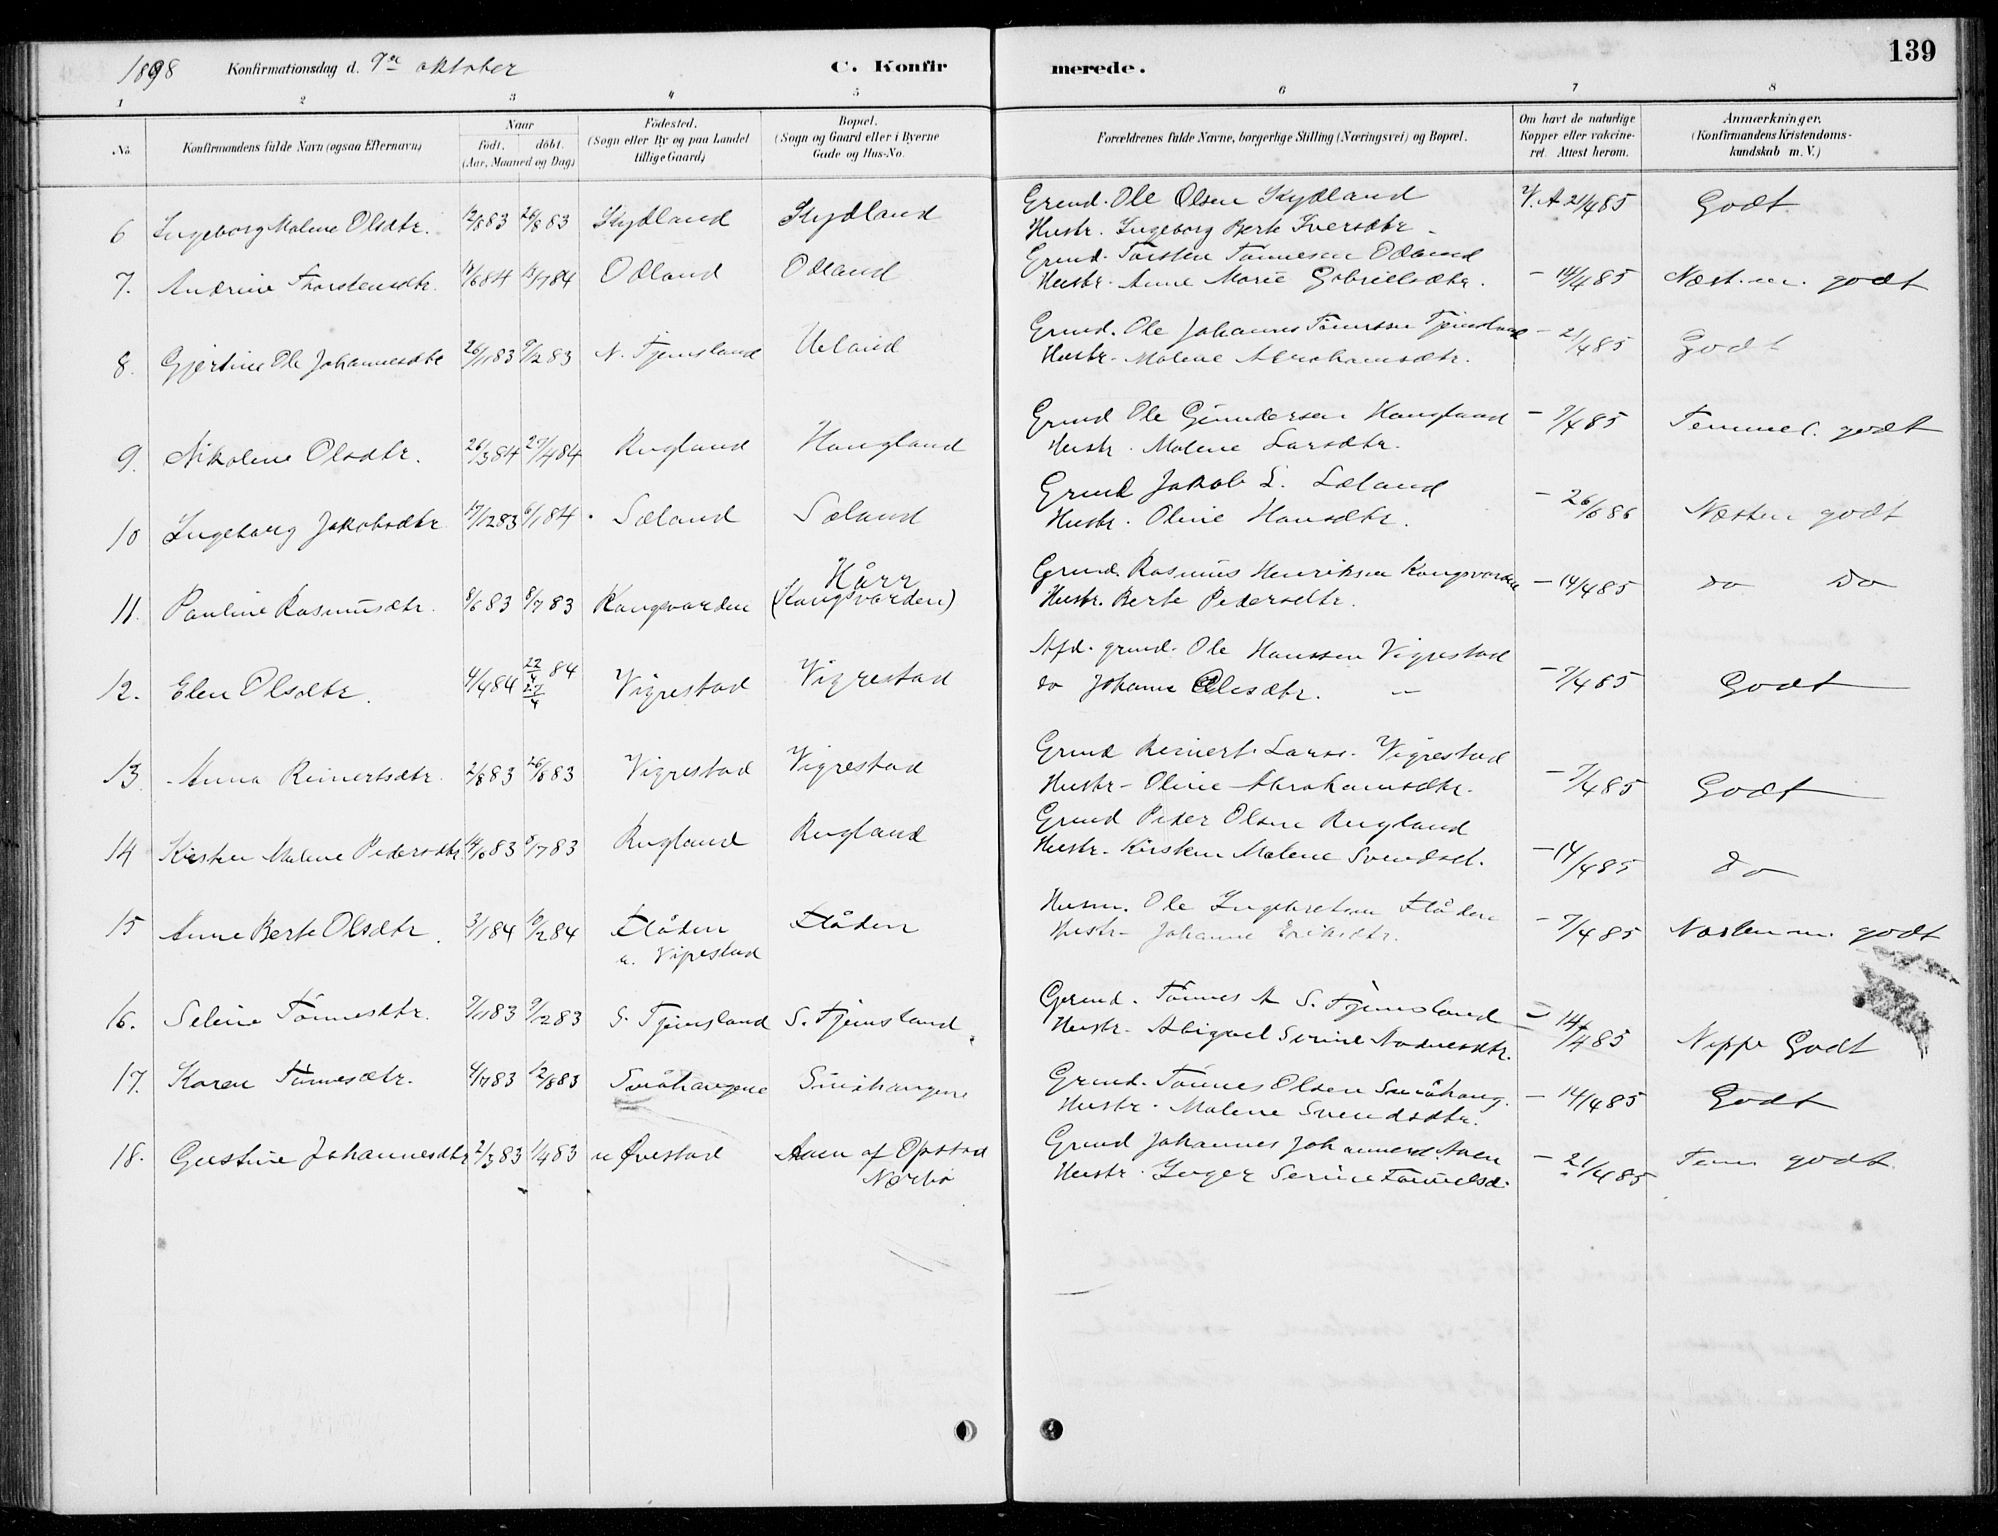 1898 Konfirmationsdag d. 9de oktober C. Konfirmerede. 139
1 2 3 4 5 6 7 8
No. Konfirmandens fulde Navn (ogsaa Efternavn) Naar født. døbt. (Aar, Maaned og Dag) Fødested. (Sogn eller By og paa Landet tillige Gaard) Bopæl. (Sogn og Gaard eller i Byerne Gade og Hus-No. Forældrenes fulde Navne, borgerlige Stilling (Næringsvei) og Bopæl. Om havt de naturlige Kopper eller vakcineret. Attest herom. Anmærkninger. (Konfirmandens Kristendomskundskab m. V.)
6 Ingeborg Malene Olsdtr. 12/883 26/883 Skydland Skydland Grund. Ole Olsen Skydland V. A 21/485 Godt
Hustr. Ingeborg Berte Iversdtr
7. Andrine Thorstensdtr. 684 13/784 Odland Odland Grund. Torsten Tønnesen Odland
Hustr. Anne Marie Gabrielsdtr. - 14/485 Næst. m. godt
8. Gjertine Ole Johannesdtr 26/183 9/283 N. Tjemsland Ueland Grund. Ole Johannes Tønnesen Tjemsland - 21/485 Godt
Hustr. Malene Abrahamsdtr.
9. Nikoline Olsdtr. 26/384 27/484 Rugland Haugland Grund Ole Gundersen Haugland - 7/485 Temmel. godt
Hustr. Malene Larsdtr.
10 Ingeborg Jakobsdtr 17/1283 6/184 Sæland Sæland Grund Jakob L. Sæland - 26/686 Næsten godt
Hustr. Oline Hansdtr.
11. Pauline Rasmusdtr. 8/683 8/783 Kongsvarden Hårr (Kongsvarden) Grund. Rasmus Henriksen Kongsvarden - 14/485 do do
Hustr. Berte Pedersdtr.
12. Elen Olsdtr. 4/484 22/4 84 27/4 Vigrestad Vigrestad Afd. grund. Ole Hanssen Vigrestad - 7/485 Godt
do Johanne Olesdtr.
13. Anna Reinertsdtr. 2/883 26/883 Vigrestad Vigrestad Grund Reinert Larss. Vigrestad - 7/485 Godt
Hustr. Oline Abrahamsdtr.
14 Kirsten Malene Pedersdtr 683 8/783 Rugland Rugland Grund Peder Olsen Rugland
Hustr. Kirsten Malene Svendsd. - 14/485 do
15 Anne Berte Olsdtr. 3/184 10/284 Flåden u. Vigrestad Flåden Husm. Ole Ingebretsen Flåden - 7/485 Næsten m. godt
Hustr. Johanne Eriksdtr.
16. Seline Tønnesdtr. 9/1183 9/1283 S. Tjemsland S. Tjemsland Grund. Tønnes A S. Tjemsland - 14/485 Neppe Godt
Hustr. Abigael Serine Aadnesdtr.
17. Karen Tønnesdtr. 4/783 12/883 Småhaugene Småhaugene Grund. Tønnes Olsen Småhaug. - 14/485 Godt
Hustr. Malene Svendsdtr.
18. Gustine Johannesdtr 2/383 1/483 u Øvestad Aaen af Opstad Nærbø Grund Johannes Johannesd. Aaen - 21/485 Tem. godt.
Hustr. Inger Serine Tønnesd.